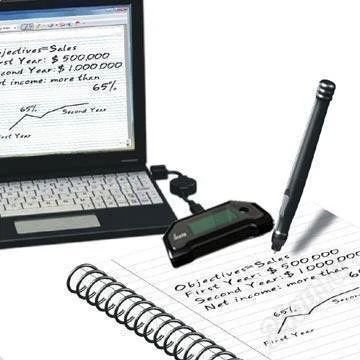 bjectives=Sales
irst Year: $ 500,000
econd Year: $ 1,000,000
et income: more than
65%
65%
Second Year
First Year
Objectives=Sales
First Year: $ 500,000
Second Year: $ 1,000,000
Net income: more than
65%
First Year